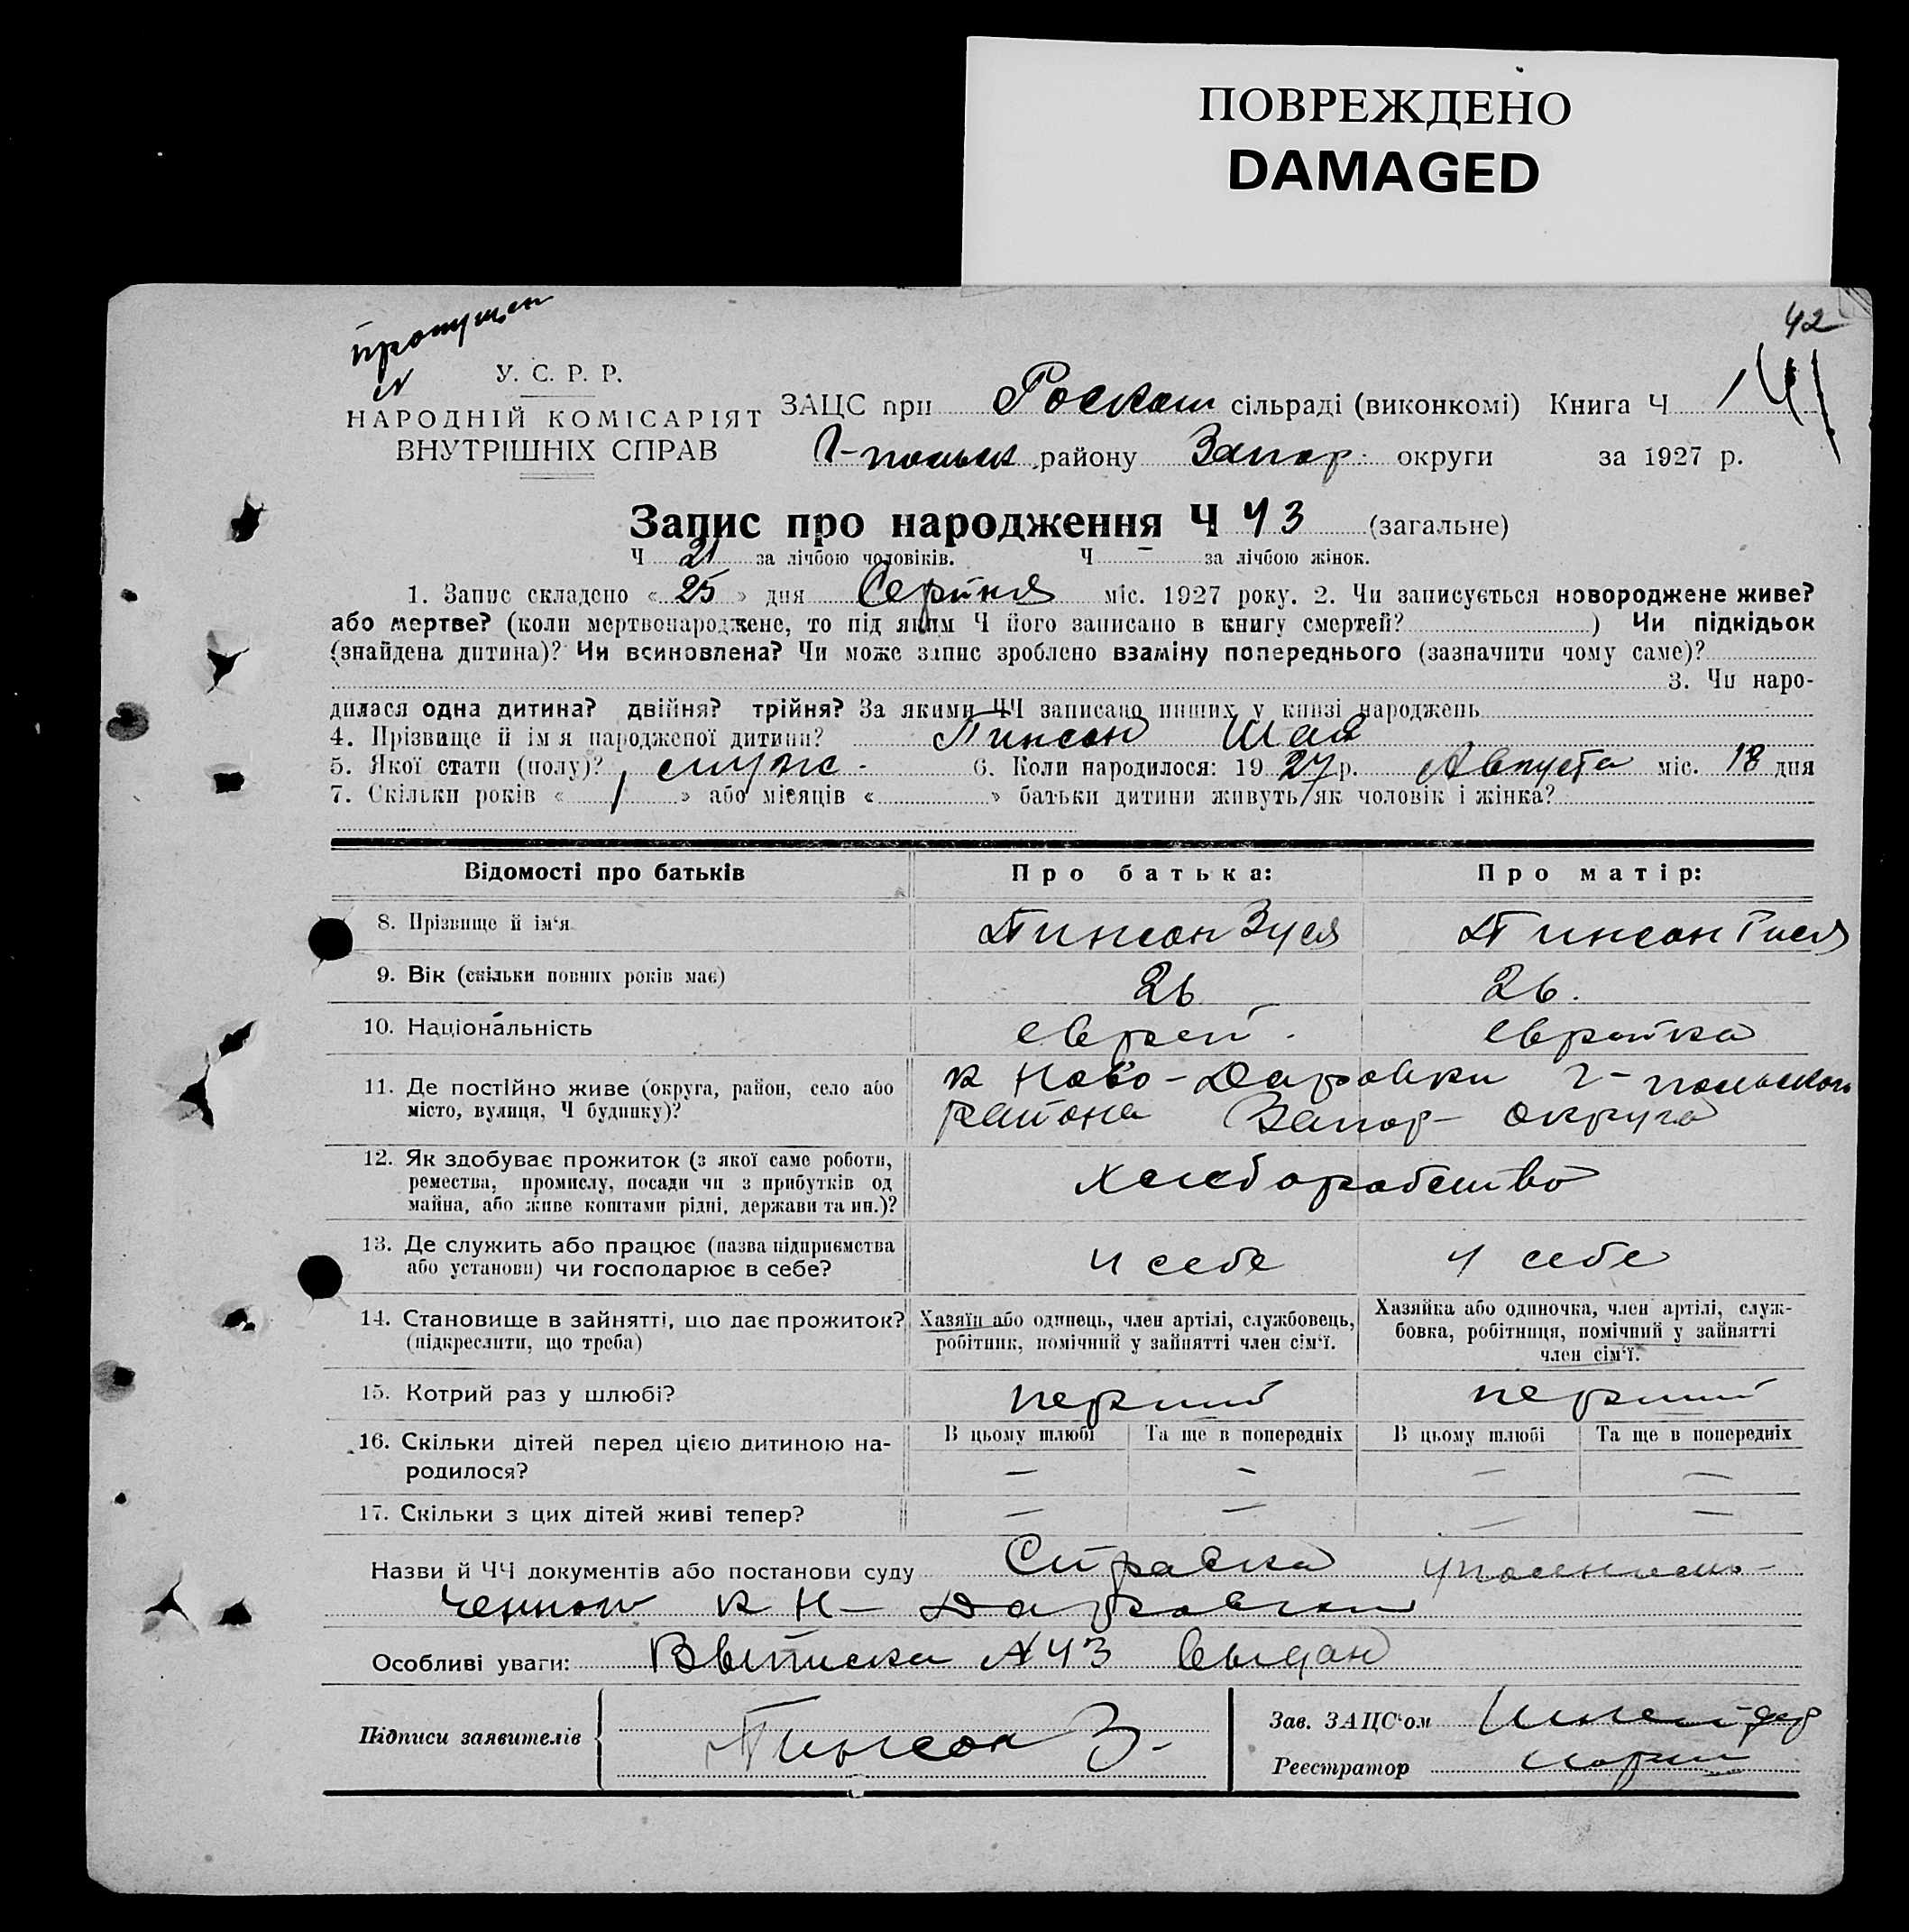 ПОВРЕЖДЕНО
DAMAGED
42
пропущен
N
У. С. Р. Р.
НАРОДНІЙ КОМІСАРІЯТ
ВНУТРІШНІХ СПРАВ
ЗАЦС при Роскош сільраді (виконкомі) Книга Ч 1
Г-польск району Запор. округи за 1927 р.
Запис про народження Ч 43 (загальне)
Ч 21 за лічбою чоловіків. Ч — за лічбою жінок.
1. Запис складено « 25 » дня Серпня міс. 1927 року. 2. Чи записується новороджене живе?
або мертве? (коли мертвонароджене, то під яким Ч його записано в книгу смертей? ) Чи підкідьок
(знайдена дитина)? Чи всиновлена? Чи може запис зроблено взаміну попереднього (зазначити чому саме)?
3. Чи наро-
дилася одна дитина? двійня? трійня? За якими ЧЧ записано инших у книзі народжень
4. Прізвище й ім'я народженої дитини? Пинсон Шая
5. Якої стати (полу)? мужс. 6. Коли народилося: 1927 р. Августа міс. 18 дня
7. Скільки років « 1 » або місяців « » батьки дитини живуть як чоловік і жінка?
Відомості про батьків
Про батька:
Про матір:
8. Прізвище й ім'я
Пинсон Зуся
Пинсон Гися
9. Вік (скільки повних років має)
26
26.
10. Національність
еврей.
еврейка
11. Де постійно живе (округа, район, село або
місто, вулиця, Ч будинку)?
к Ново-Даровки Г-польского
района Запор- округа
12. Як здобуває прожиток (з якої саме роботи,
ремества, промислу, посади чи з прибутків од
майна, або живе коштами рідні, держави та ин.)?
хлеборобство
13. Де служить або працює (назва підприємства
або установи) чи господарює в себе?
у себе
у себе
14. Становище в зайнятті, що дає прожиток?
(підкреслити, що треба)
Хазяїн або одинець, член артілі, службовець,
робітник, помічний у зайнятті член сім'ї.
Хазяйка або одиночка, член артілі, служ-
бовка, робітниця, помічний у зайнятті
член сім'ї.
15. Котрий раз у шлюбі?
перший
перший
16. Скільки дітей перед цією дитиною на-
родилося?
В цьому шлюбі
Та ще в попередніх
В цьому шлюбі
Та ще в попередніх
— — — —
17. Скільки з цих дітей живі тепер?
— — — —
Назви й ЧЧ документів або постанови суду Справка уполномо-
ченного к Н- Даровки
Особливі уваги: Выписка N43 выдан
Підписи заявителів
Пинсон З-
Зав. ЗАЦС'ом
Реєстратор